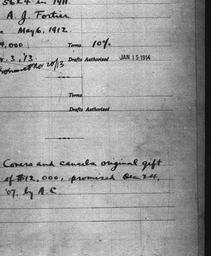 5624 in 1911.
A. J. Fortier
May 6, 1912.
9,000 Terms 10%
3, 13 Drafts Authorized JAN 15 1914
Nov 20/13
Terms
Drafts Authorized
Covers and cancels original gift
of $12,000, promised Dec 24,
'07, by A.C